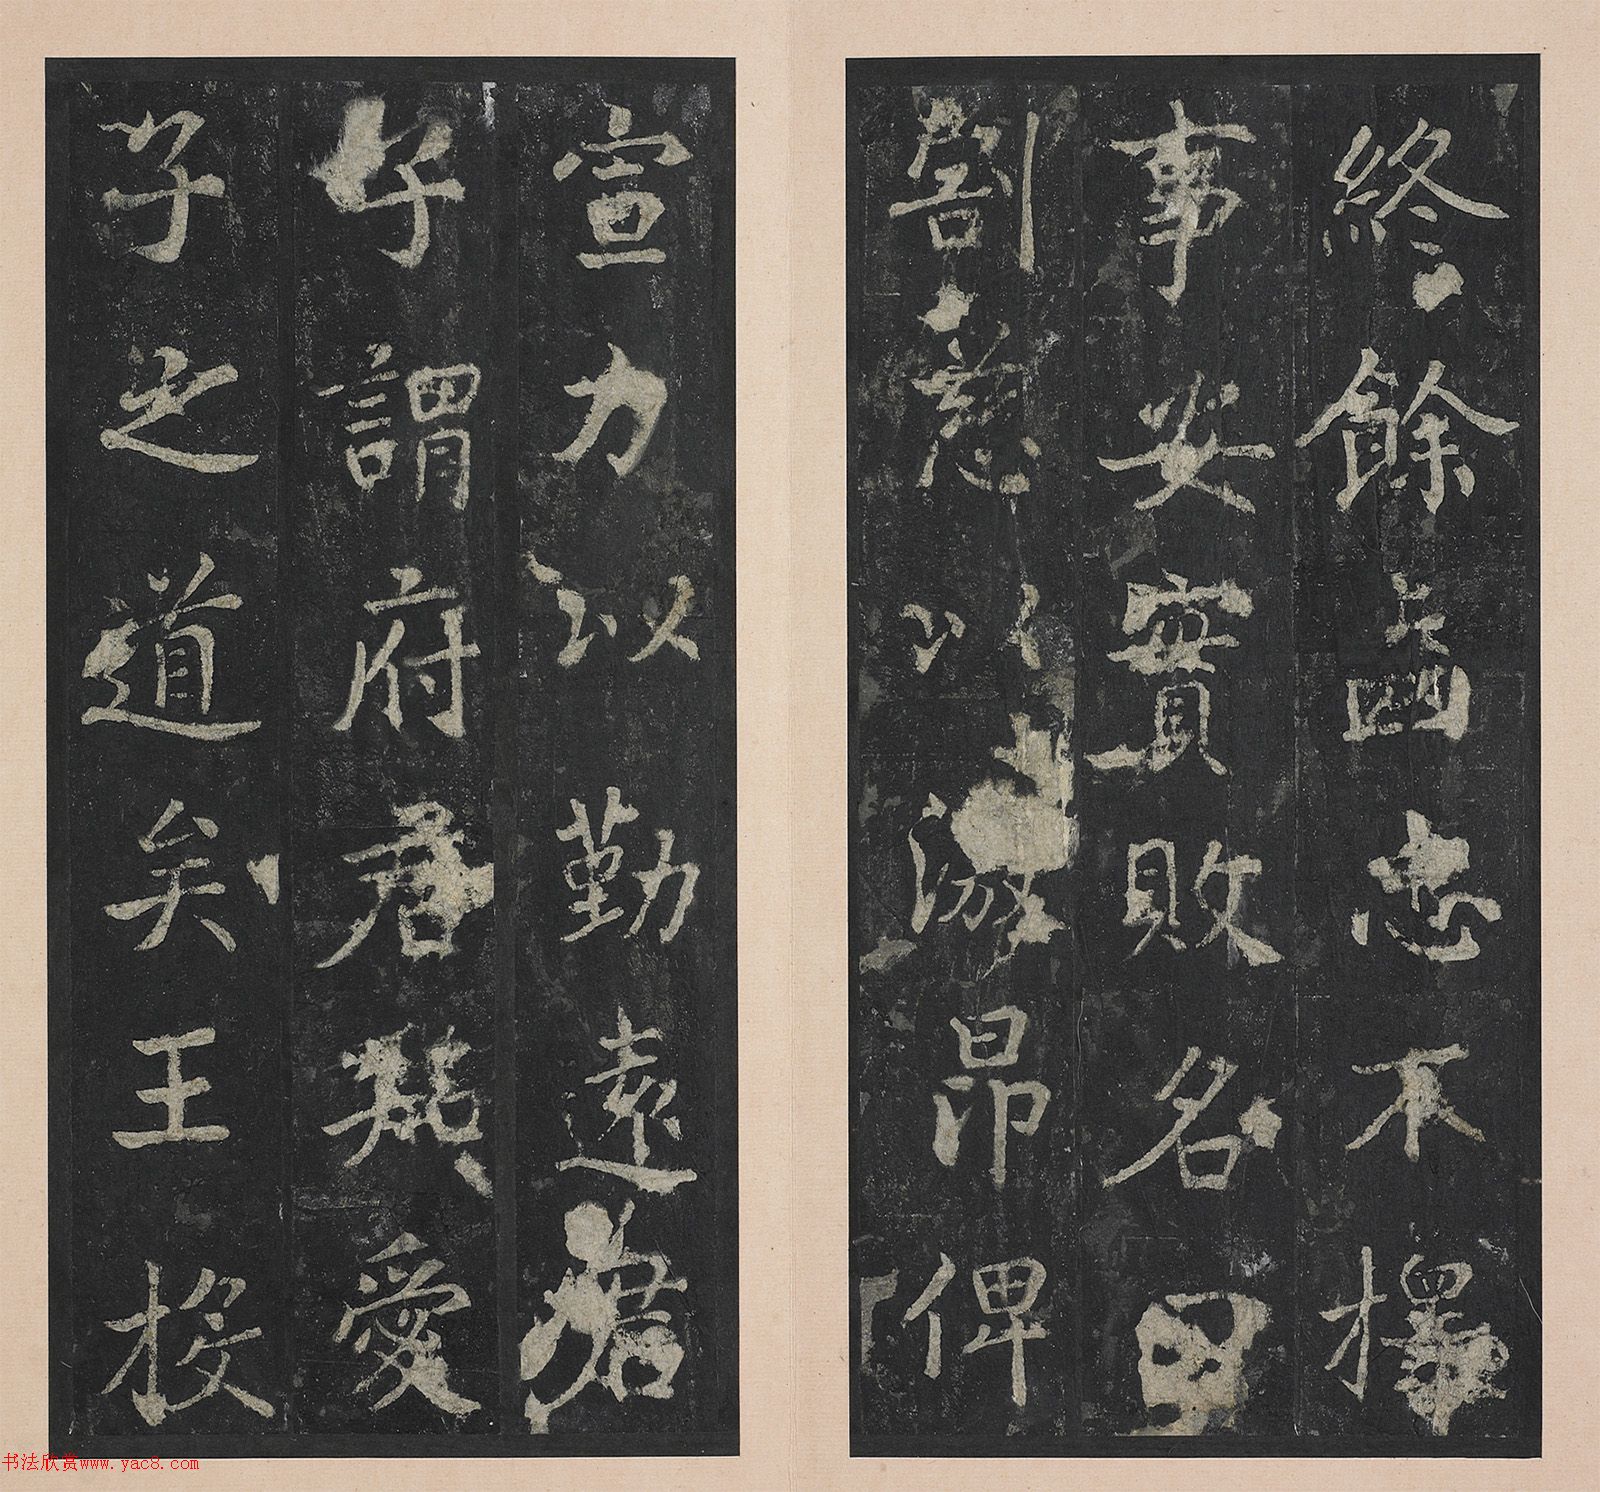 終餘齒忠不擇
事安實敗名
割慈以游昂俾
宣力以勤遠君
子謂府君愛
子之道矣王投
书法欣赏www.yac8.com